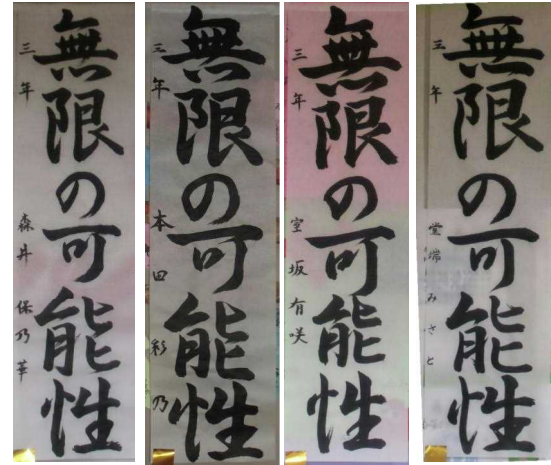 無限の可能性
三年 森井 保乃華
無限の可能性
三年 本田 彩乃
無限の可能性
三年 室坂有咲
無限の可能性
三年 堂端みさと